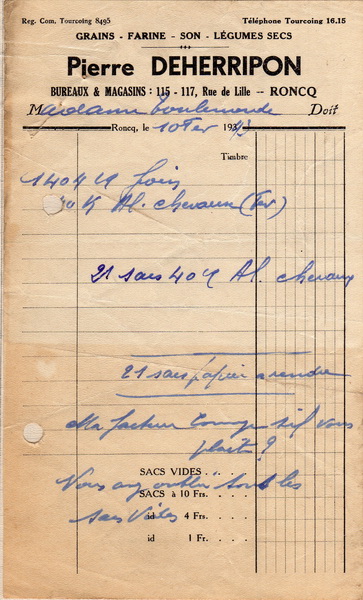 Reg. Com. Tourcoing 8495 Téléphone Tourcoing 16.15
GRAINS - FARINE - SON - LÉGUMES SECS
Pierre DEHERRIPON
BUREAUX & MAGASINS : 115 - 117, Rue de Lille -- RONCQ
Madame Toulemonde Doit
Roncq, le 10 Fev 1943
Timbre
1404 K foin
K Al. chevaux (Fev)
21 sacs 40 K Al. chevaux
21 sacs papier a rendre
Ma facture Comage s'il vous
plaît ?
SACS VIDES . . .
Vous avez oublié tous les
SACS à 10 Frs.
sacs vides
id 4 Frs.
id 1 Fr.